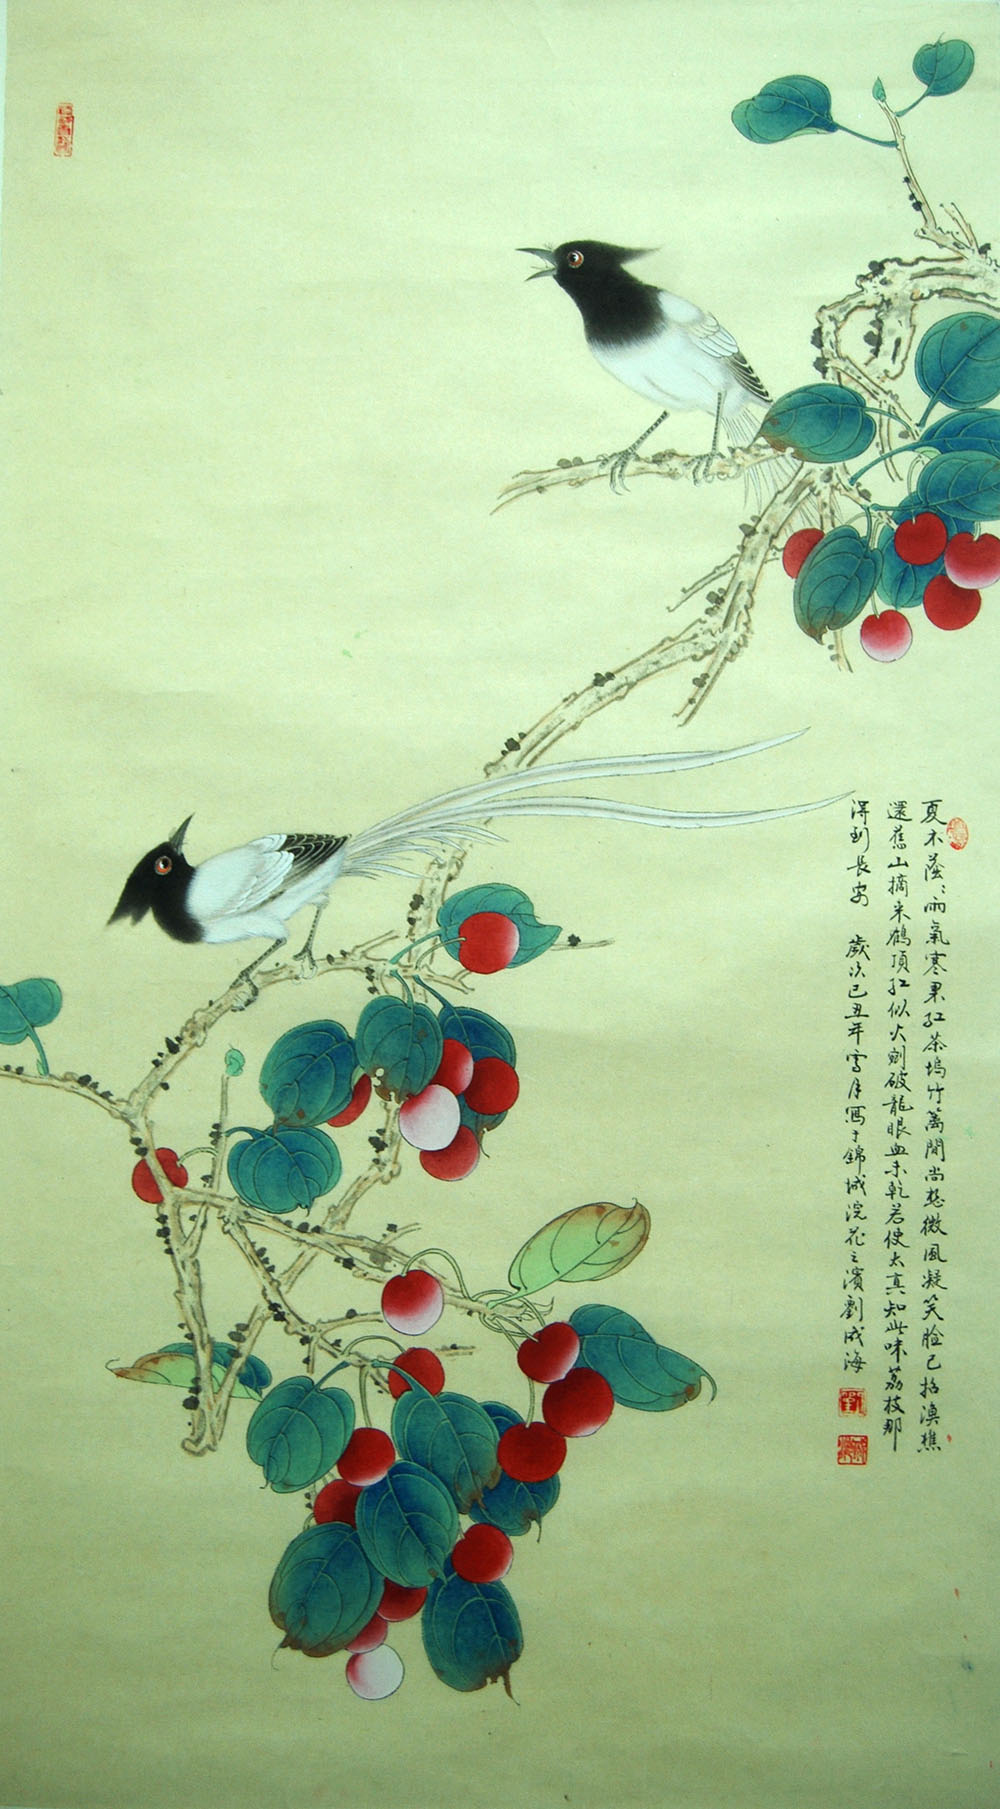 夏木蔭々雨氣寒果紅茶塢竹籬間尚愁微風凝笑臉已拈漁樵
還舊山摘来鶴頂紅似火剜破龍眼血未乾若使太真知此味荔枝那
得到長安　歲次己丑年雪月寫于錦城浣花之濱劉成海